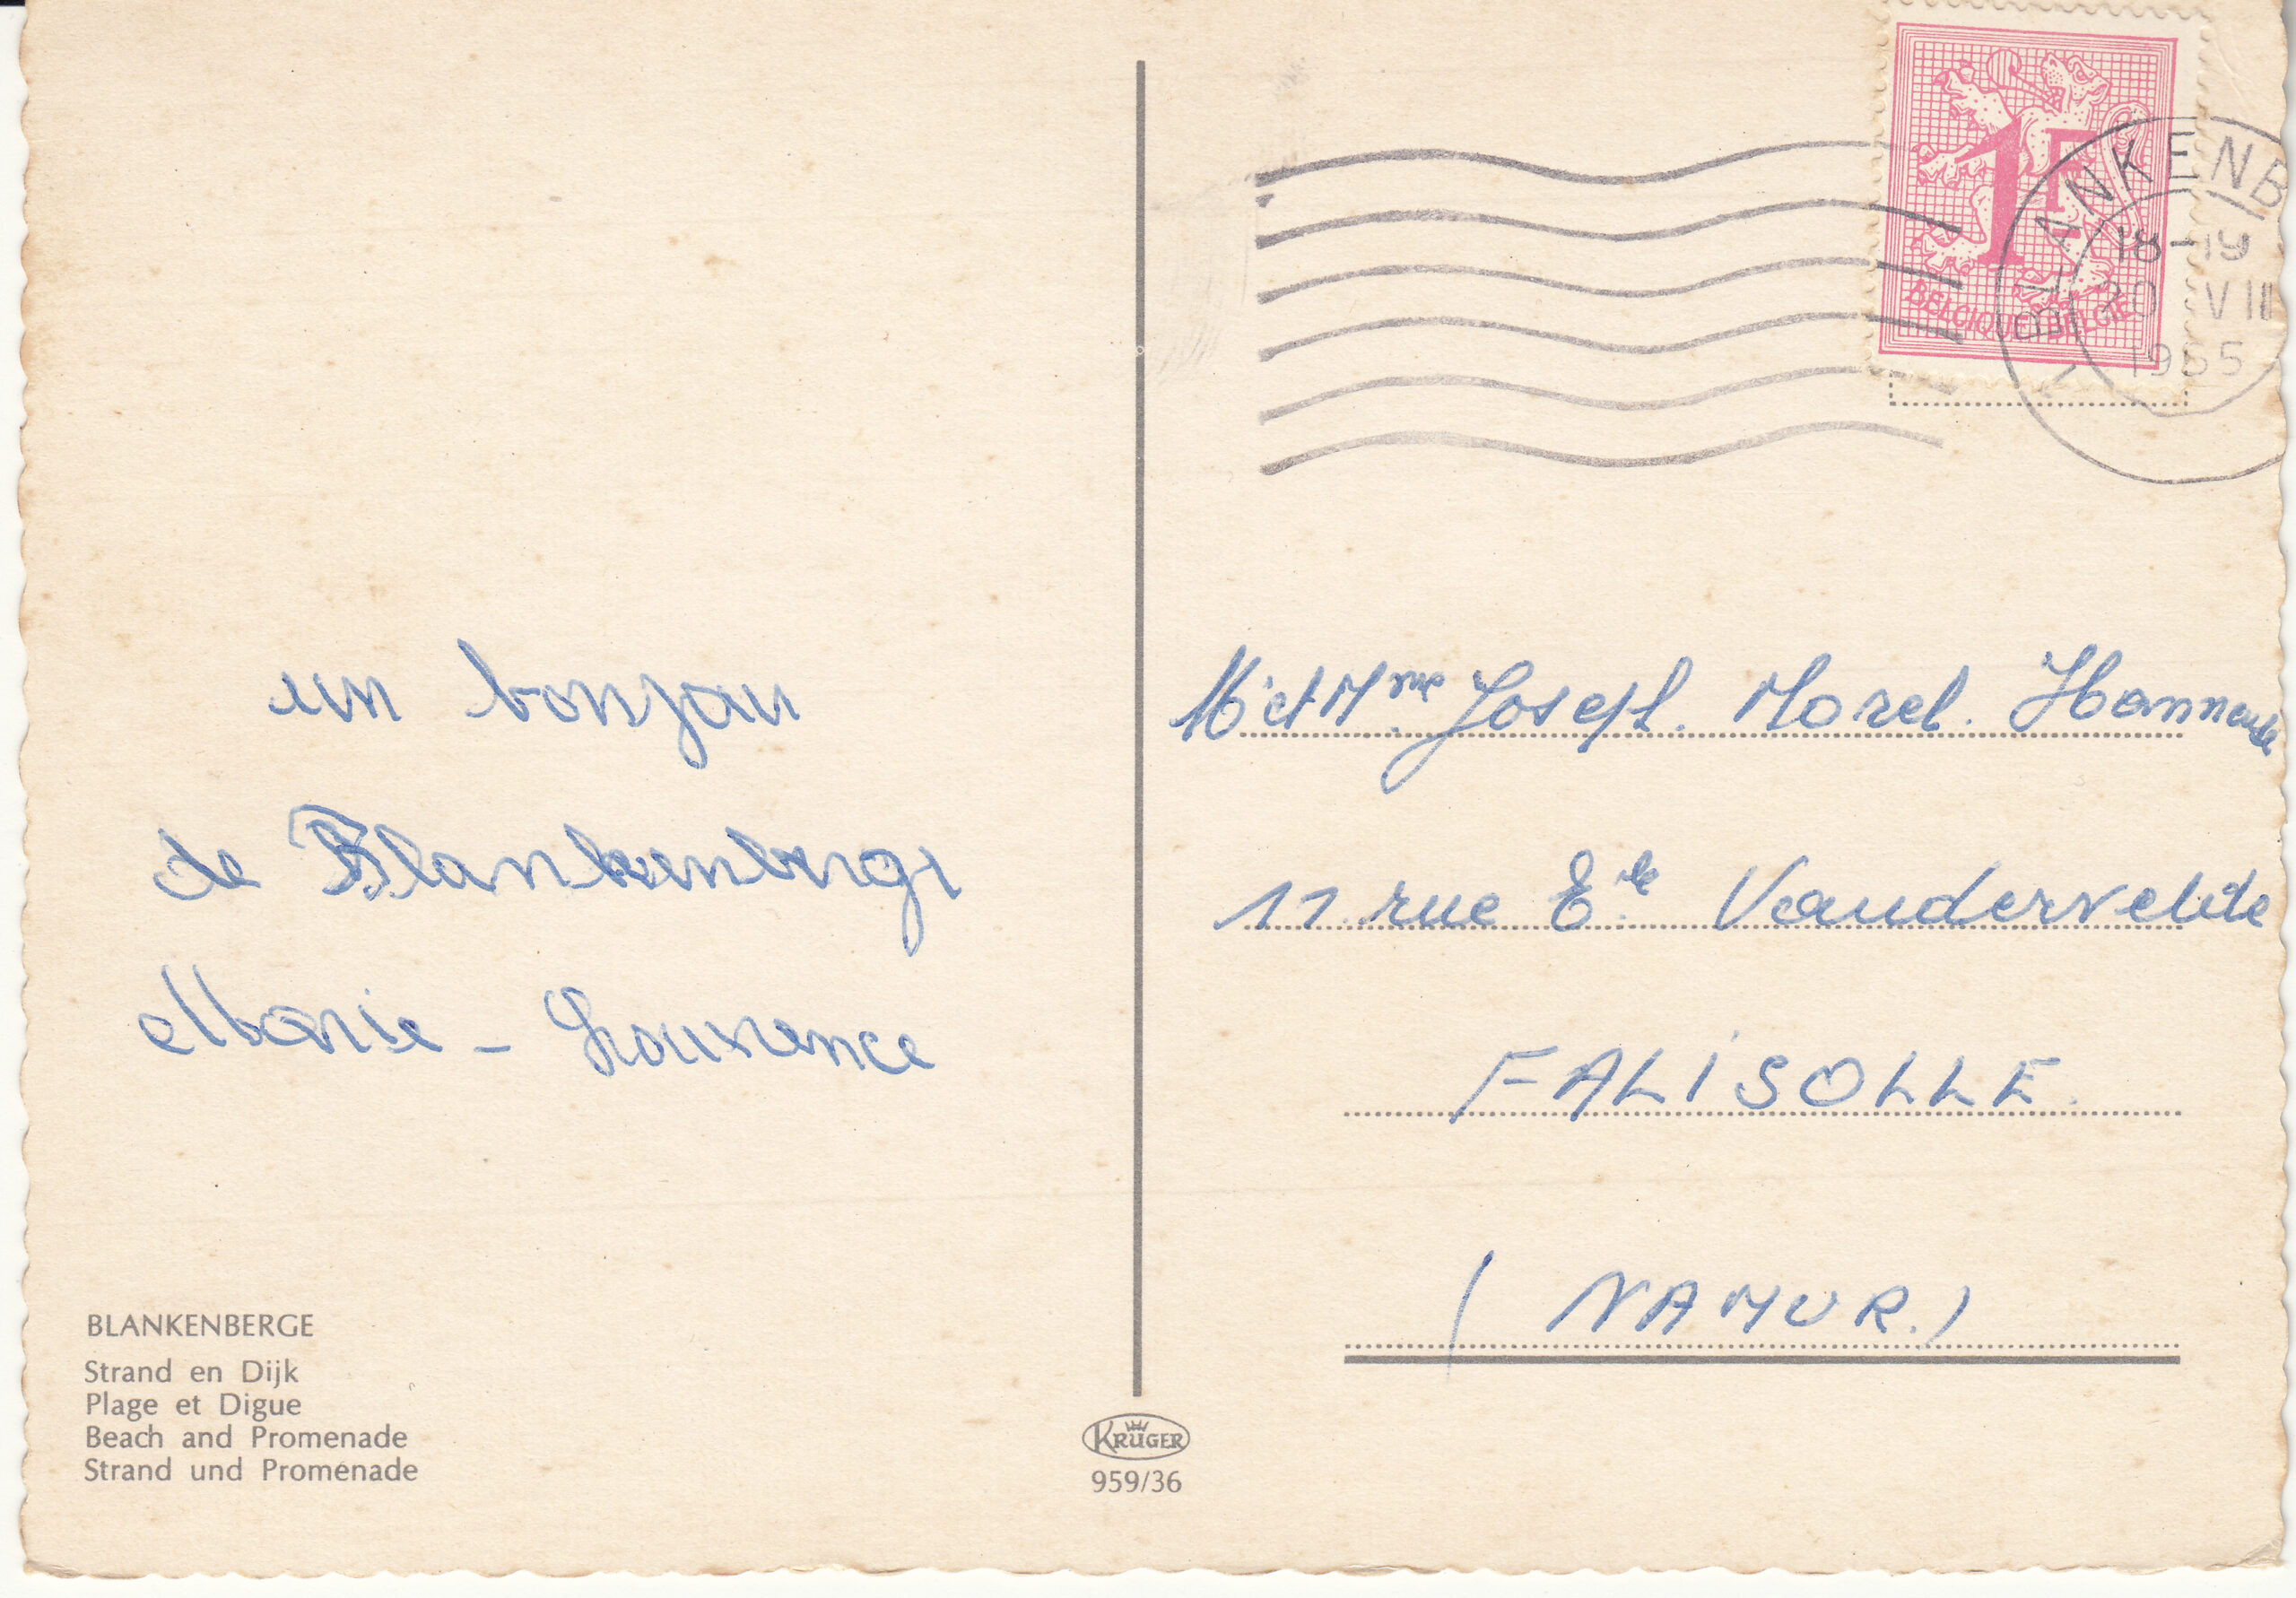 1F
BELGIQUE BELGIE
BLANKENB
18-19
20 VII
1965
un bonjou
de Blankenberge
Lourence
M et Mme Joseph Morel. Hannecart
11 rue Ele Vandervelde
FALISOLLE.
(NAMUR.)
BLANKENBERGE
Strand en Dijk
Plage et Digue
Beach and Promenade
Strand und Promenade
KRÜGER
959/36